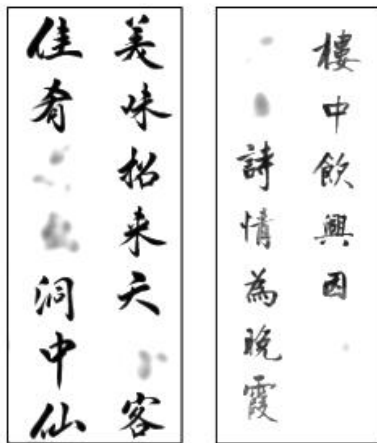 美味招来天客
佳肴洞中仙
樓中飲興因
詩情為晚霞